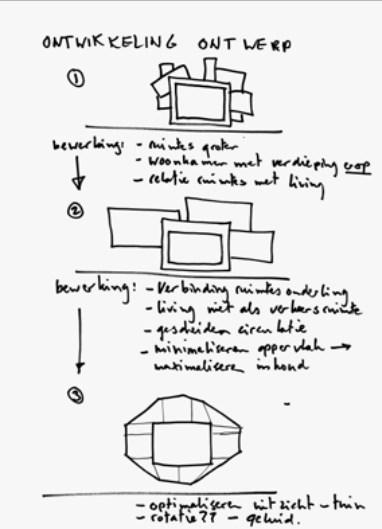 ONTWIKKELING ONTWERP
1
bewerking: - ruimtes groter
- woonkamer met verdieping erop
- relatie ruimtes met living
2
bewerking: - verbinding ruimtes onderling
- living niet als verkeersruimte
- gescheiden circulatie
- minimaliseren oppervlak →
maximaliseren inhoud
3
- optimaliseren uitzicht - tuin
- rotatie?? - geluid.